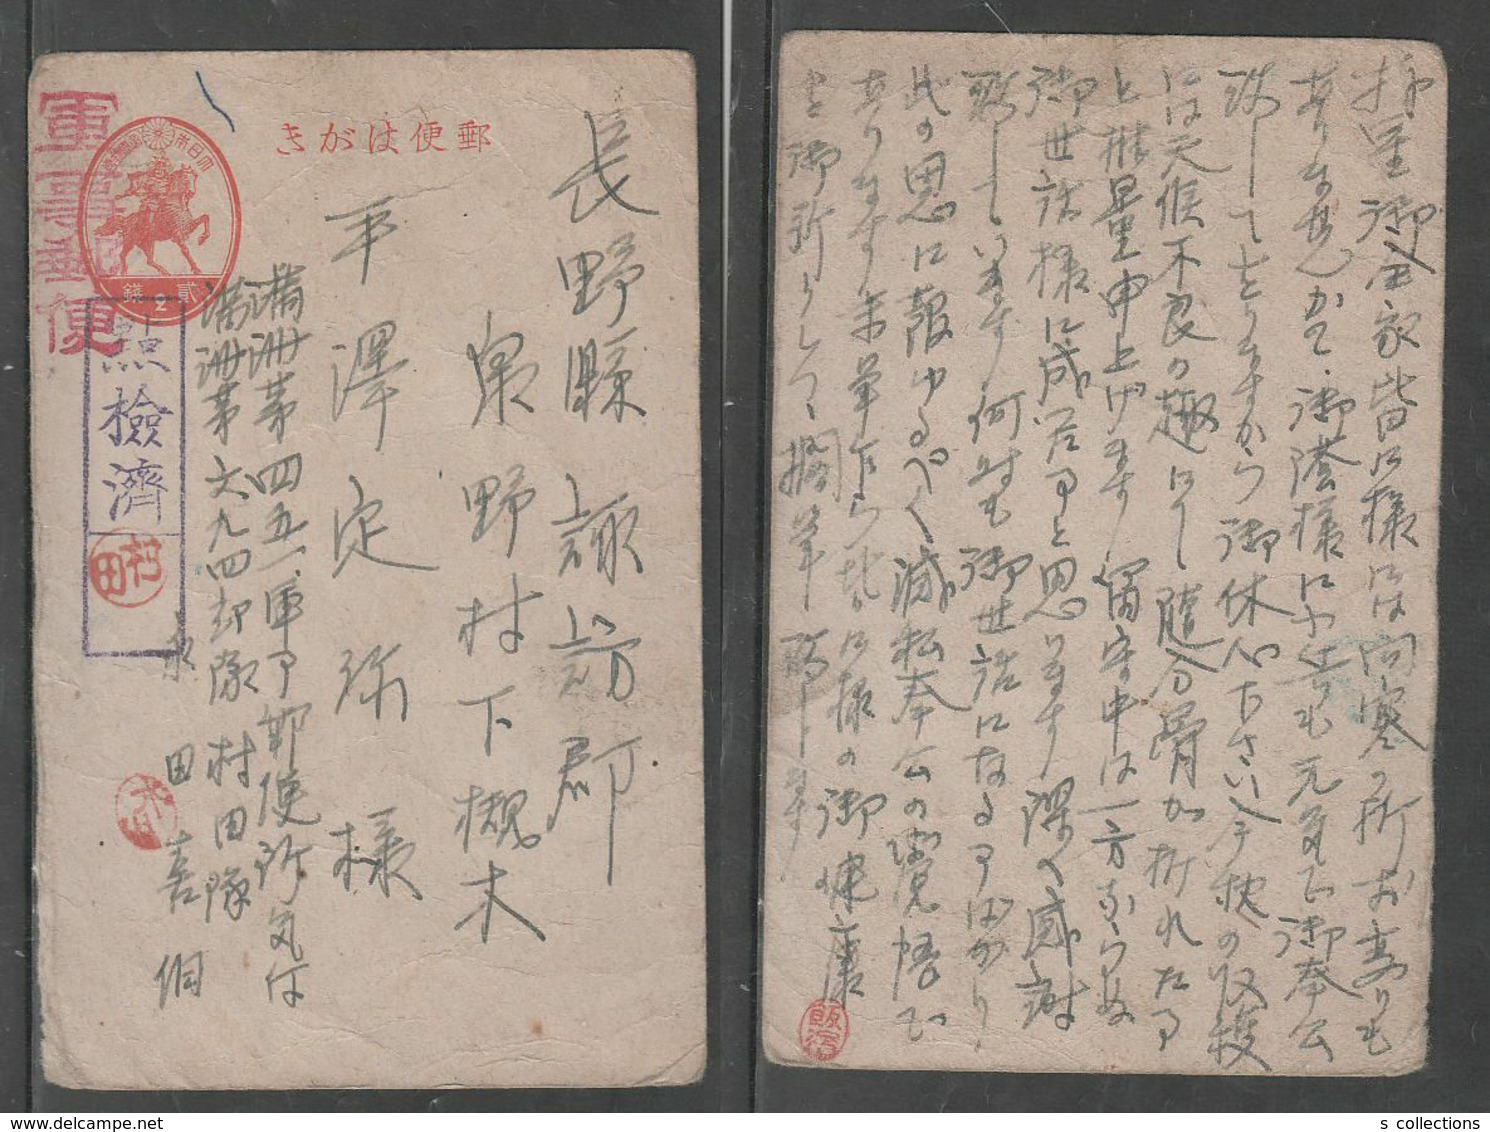 郵便はがき
大日本
貳錢
2
軍事郵便
檢濟
村田
長野縣諏訪郡
泉野村下槻木
平澤定弥様
満洲第四五一軍事郵便所気付
満洲第六九四部隊村田隊
田喜
拝呈御一家皆々様には向寒の折お変りも
ありませんかて、御蔭様にて小生も元気で御奉公
致してをりますから御休心下さい 今秋の収穫
には天候不良の趣にて随分骨が折れたる
と推量申上げます 留守中は一方ならぬ
御世話様に成居る事と思ひます 深く感謝
致して居ます 何時も御世話になる事ばかり
此の恩に報ゆるべく滅私奉公の覚悟で
あります 末筆乍ら 皆々様の御健康
を御祈りして、擱筆致します
飯沼
s collections